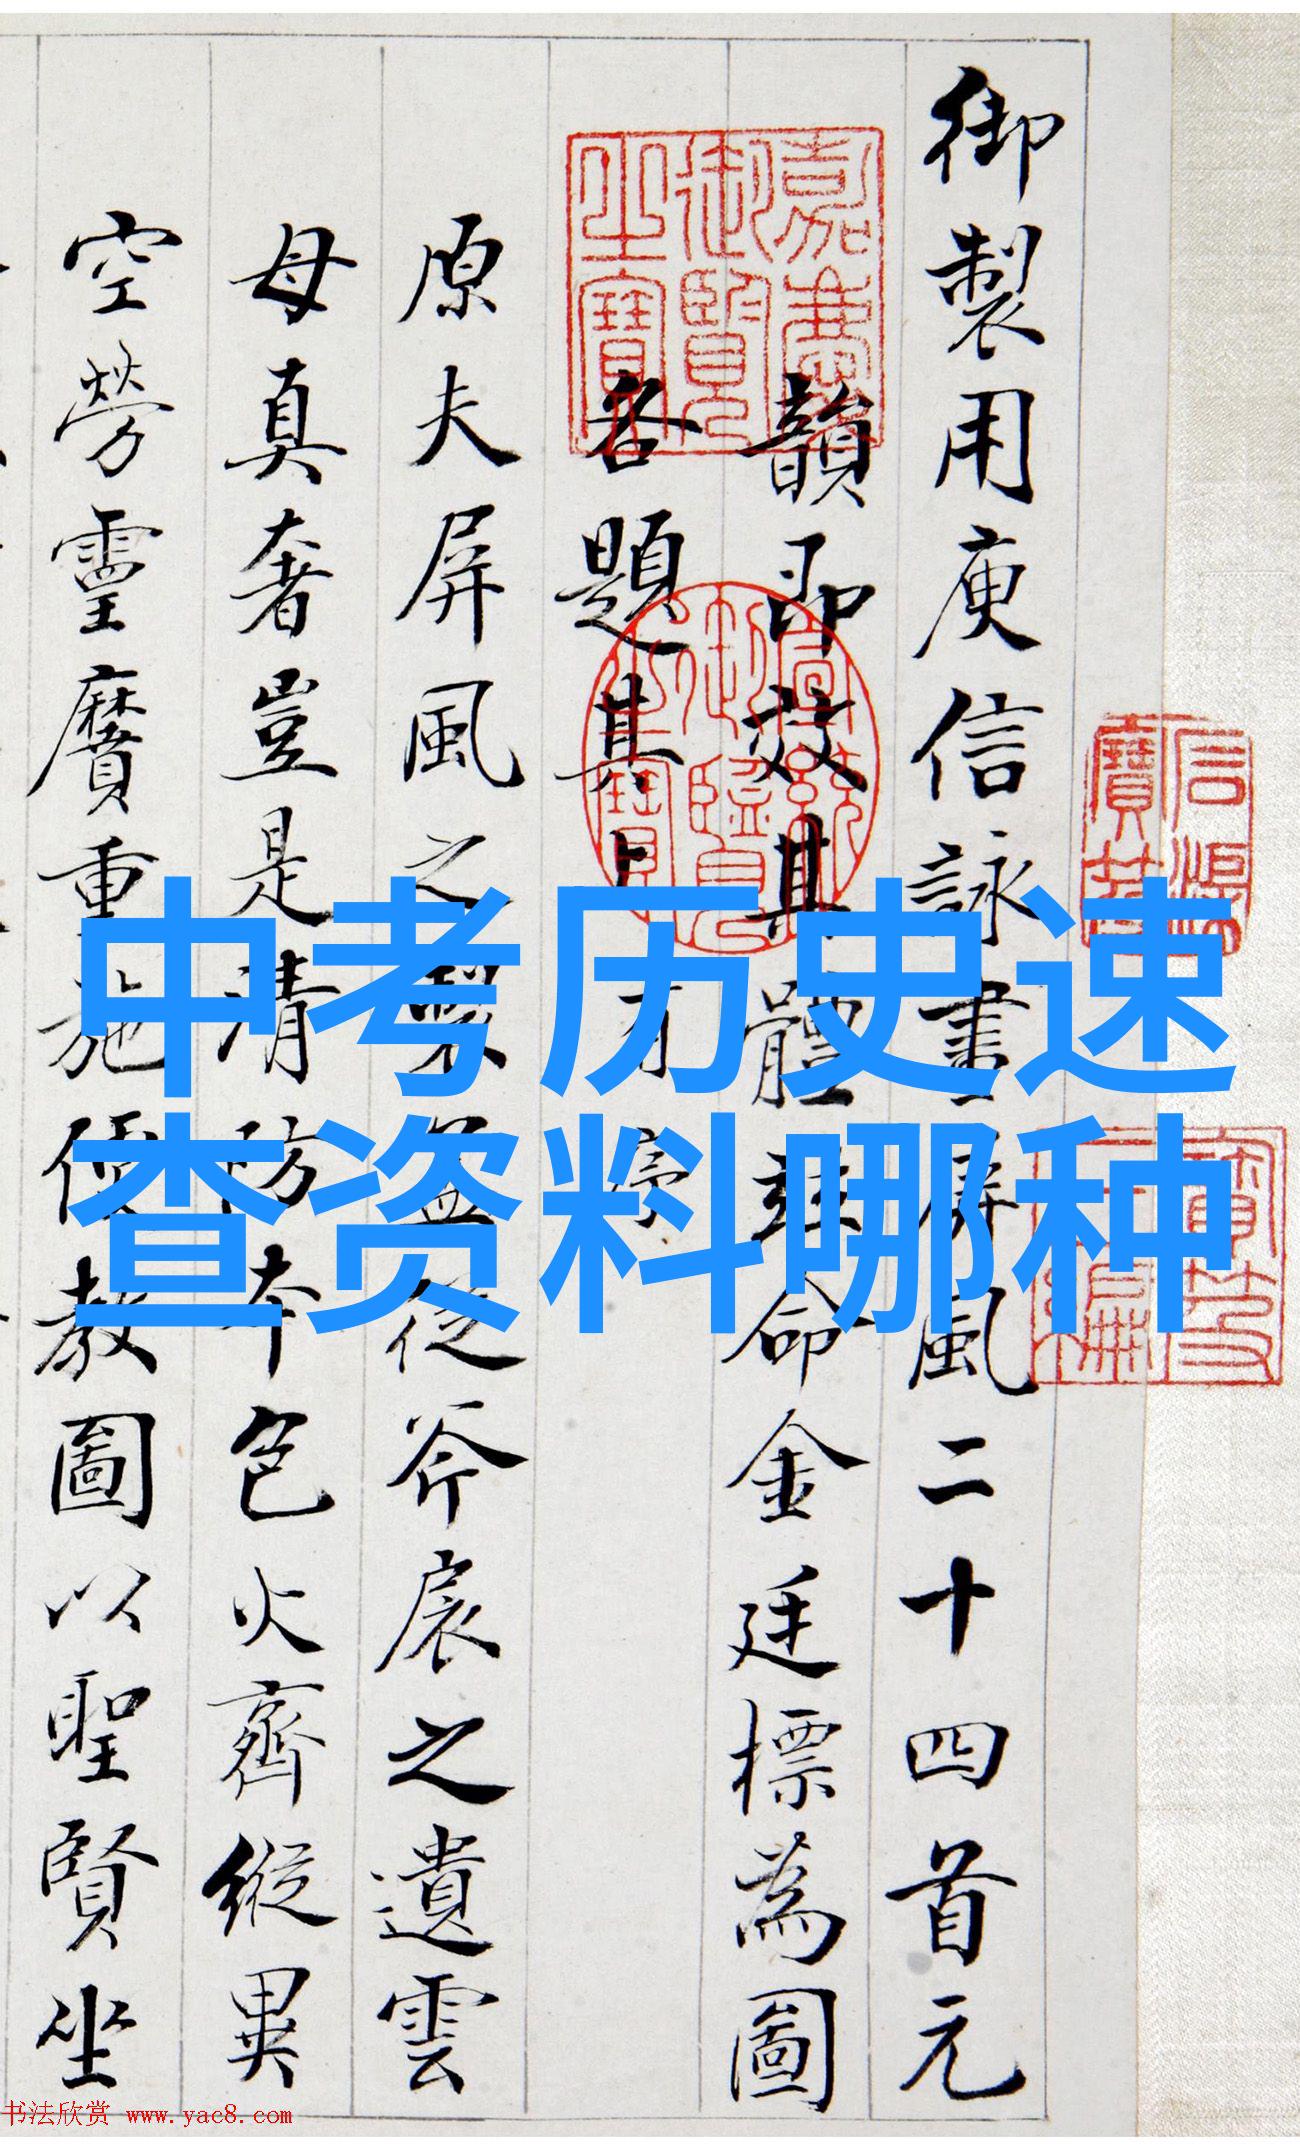 御製用庾信詠畫屏風二十四首元
韻即效其體並命金廷標為圖
各題其上有序
原夫屏風之製蓋從斧扆之遺雲
母真奢豈是清防本色火齊縱異
空勞靈贋重施便教圖以聖賢坐
嘉慶御覽之寶
中考历史速
查资料哪种
书法欣赏 www.yac8.com